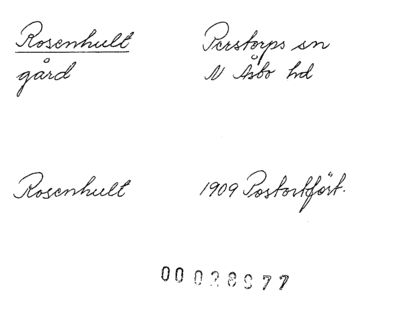 Rosenhult Perstorps sn
gård N Åsbo hd
Rosenhult 1909 Postortfört.